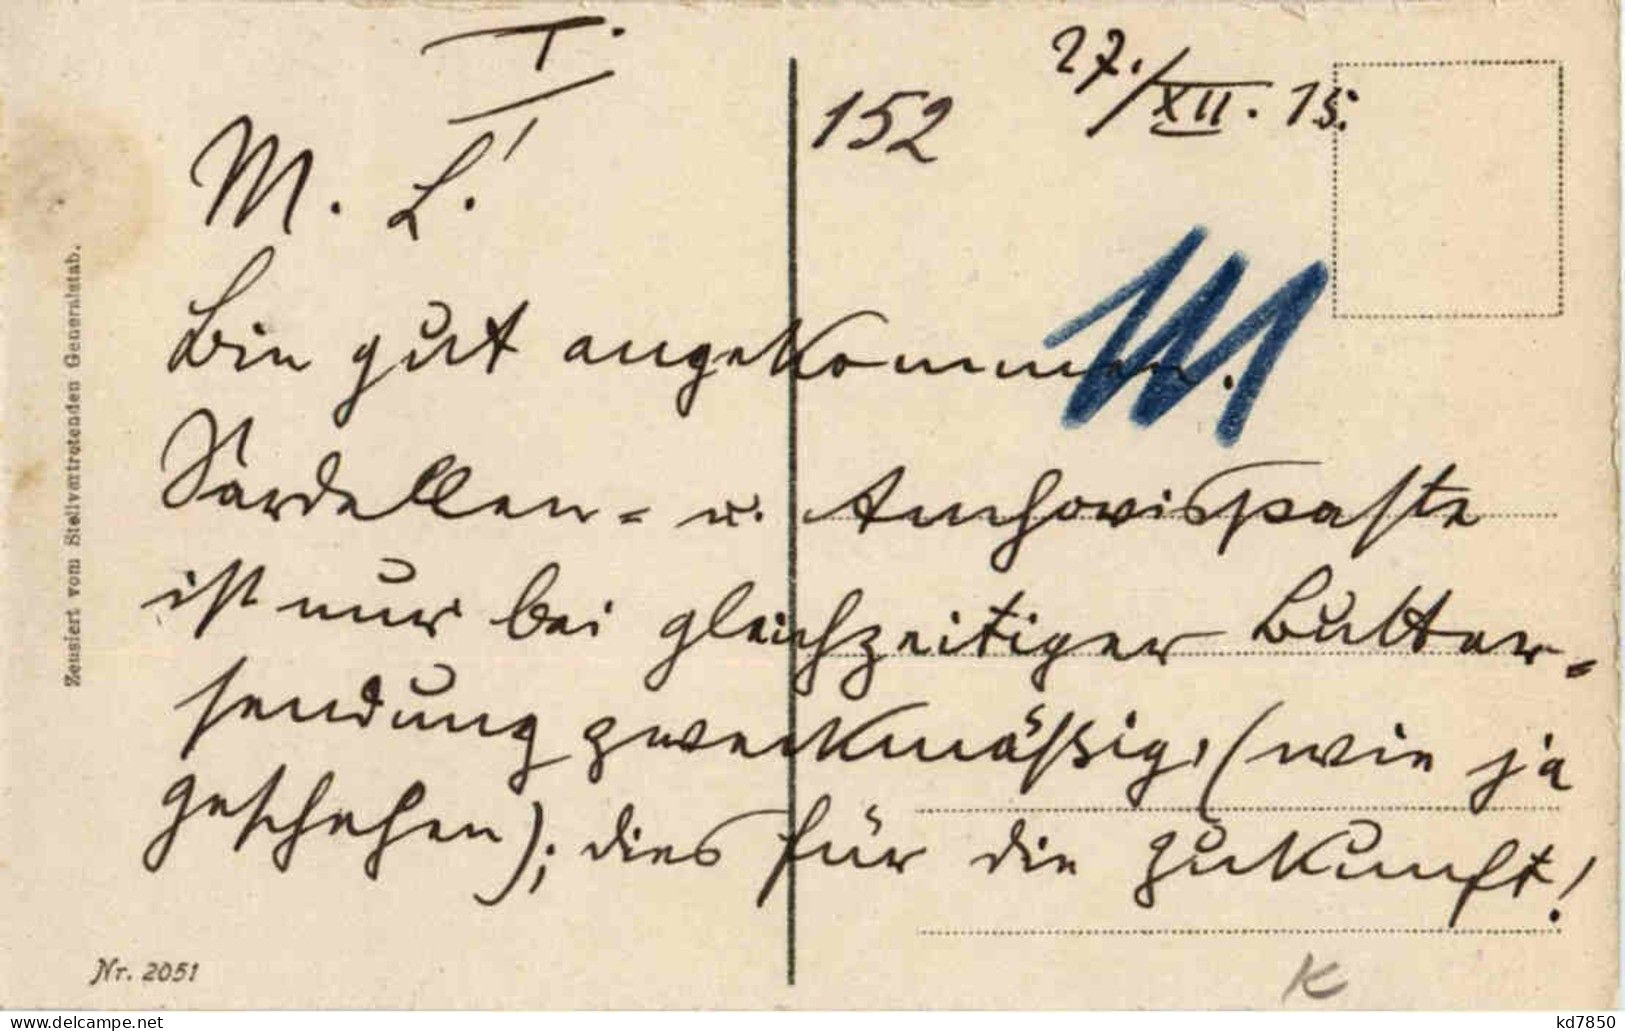 I.
152
27./XII. 15.
M. L.!
Bin gut angekommen.
Sardellen- u. Anchovispaste
ist nur bei gleichzeitiger Butter-
sendung zweckmäßig, (wie ja
geschehen); dies für die Zukunft!
Zensiert vom Stellvertretenden Generalstab.
Nr. 2051
K
kd7850